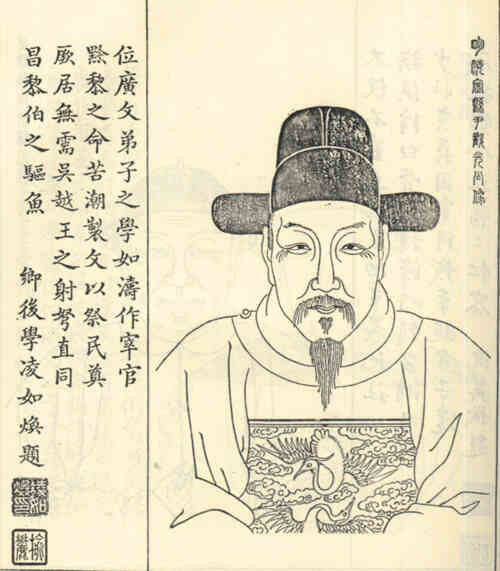 位廣文弟子之學如濤作宰官
黔黎之命苦潮製文以祭民奠
厥居無需吳越王之射弩直同
昌黎伯之驅魚
鄉後學凌如煥題